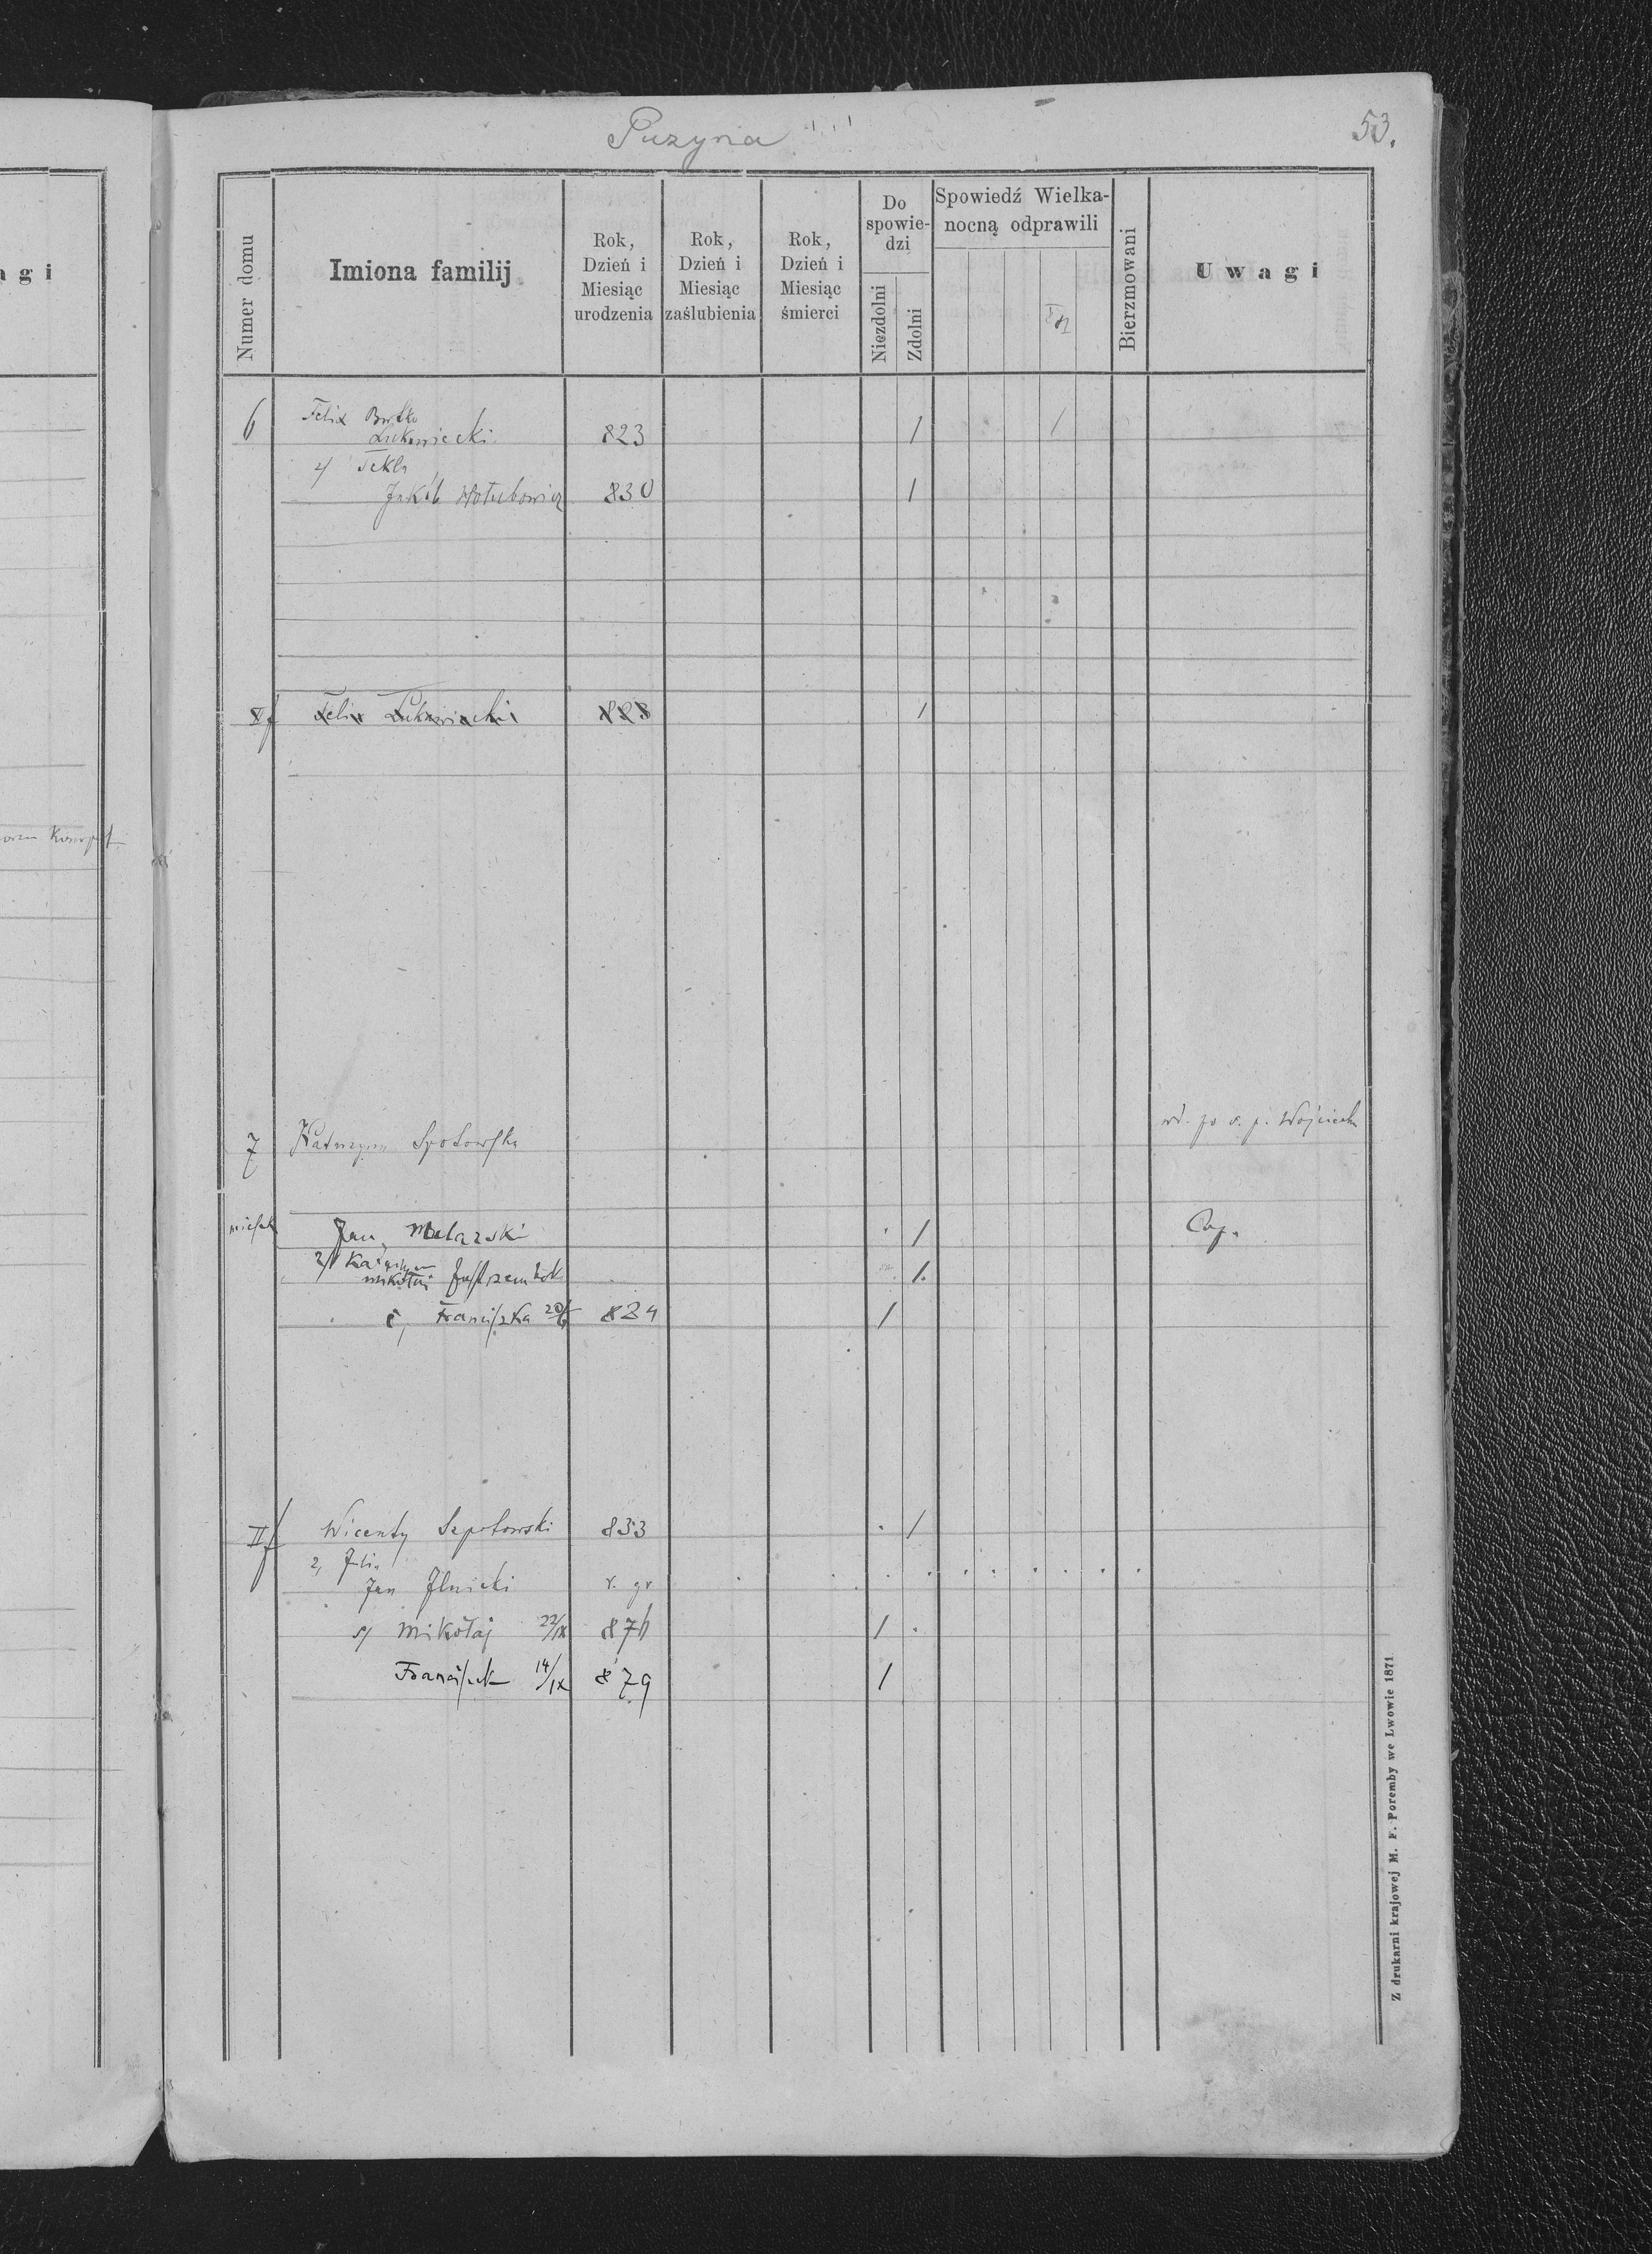 Puzyna
53.
agi
Numer domu
Imiona familij
Rok, Dzień i Miesiąc urodzenia
Rok, Dzień i Miesiąc zaślubienia
Rok, Dzień i Miesiąc śmierci
Do spowiedzi
Niezdolni
Zdolni
Spowiedź Wielkanocną odprawili
Bierzmowani
Uwagi
6 Felix
Łukawiecki 823 / /
2/ Tekla
Jakób Hołubowicz 830 /
Felix Łukawiecki 823 /
7 Katarzyna Spotowska
Jan Malarski /
2/ Katarzyna
Mikołaj /
c, Franciszka 884 /
II f Wicenty Szpotowski 833 /
2, Julia
Jan Ilnicki r. gr
s/ Mikołaj 22/IX 876 /
Franciszek 14/IX 879 /
Z drukarni krajowej M. F. Poremby we Lwowie 1871